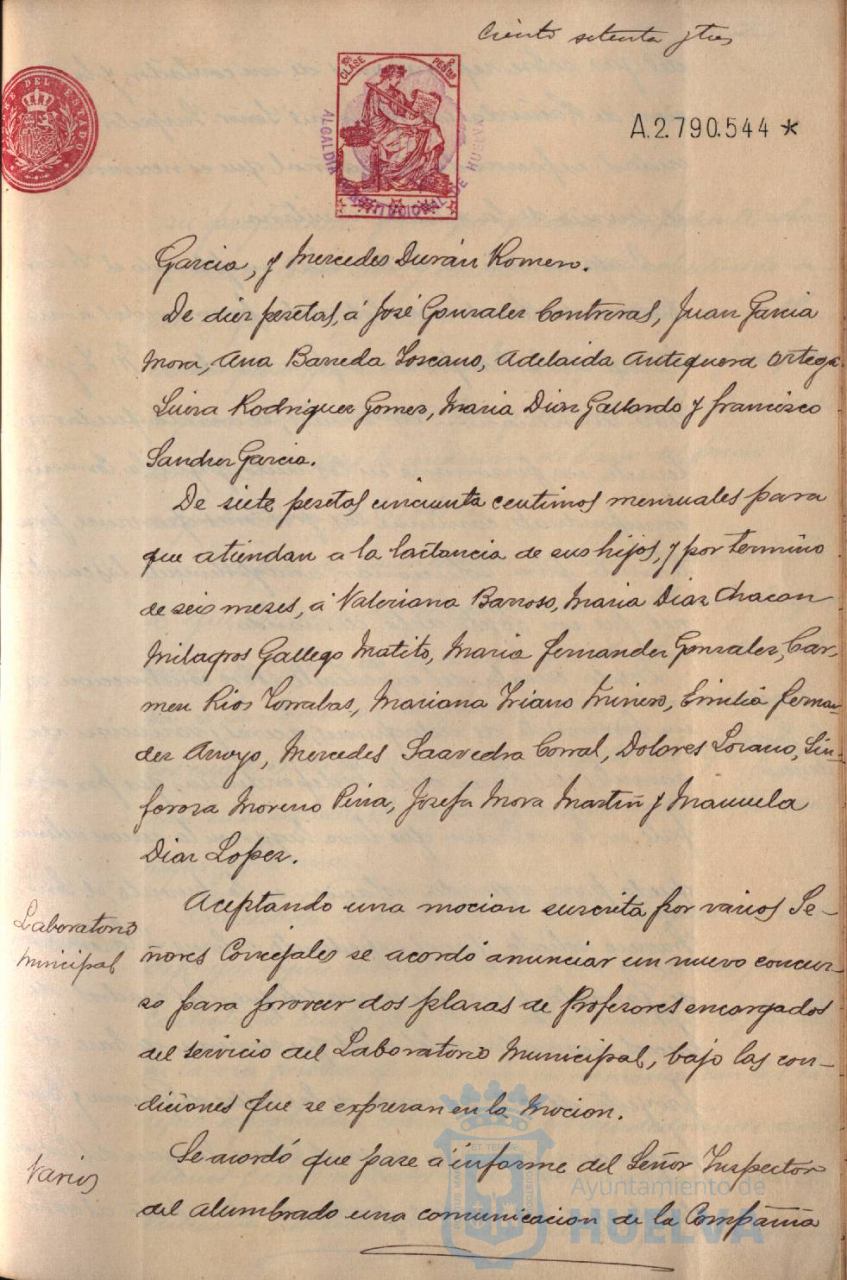 Ciento setenta y tres
10ª CLASE
2 PESETAS
DEL ESTADO
ALCALDIA CONSTITUCIONAL DE HUELVA
A.2.790.544 *
Garcia, y Mercedes Durán Romero.
De diez pesetas, á José Gonzalez Contreras, Juan Garcia
Mora, Ana Barreda Toscano, Adelaida Antequera Ortega
Luisa Rodriguez Gomez, Maria Diaz Gallardo y Francisco
Sanchez Garcia.
De siete pesetas cincuenta centimos mensuales para
que atiendan a la lactancia de sus hijos, y por termino
de seis meses, á Valeriana Barroso, Maria Diaz Chacon
Milagros Gallego Matito, Maria Fernandez Gonzalez, Car-
men Rios Torrabas, Mariana Triano Trinero, Emilia Fernan-
dez Arroyo, Mercedes Saavedra Corral, Dolores Lozano, Sin-
forosa Moreno Piña, Josefa Mora Martin y Manuela
Diaz Lopez.
Laboratorio
Municipal
Aceptando una mocion suscrita por varios Se-
ñores Concejales se acordó anunciar un nuevo concur-
so para proveer dos plazas de Profesores encargados
del servicio del Laboratorio Municipal, bajo las con-
diciones que se expresan en la Mocion.
Varios
Se acordó que pase á informe del Señor Inspector
del alumbrado una comunicacion de la Compañia
Ayuntamiento de
HUELVA